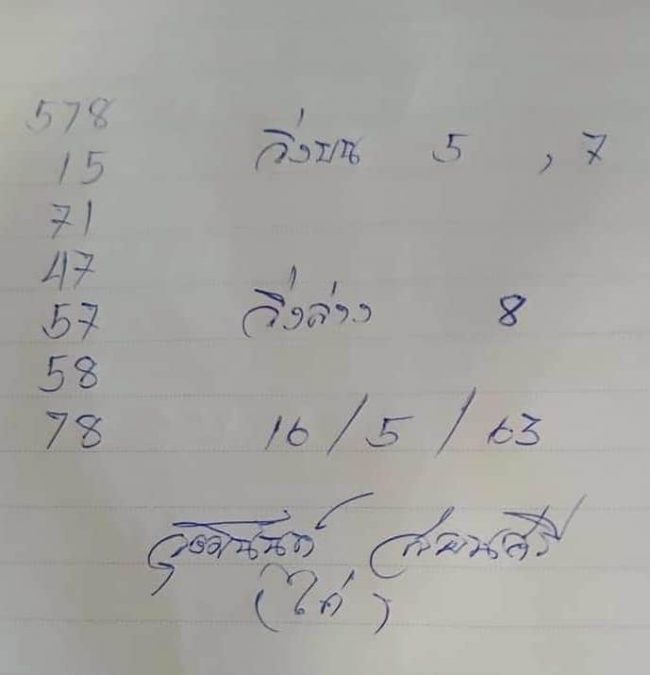 578
15
71
47
57
58
78
วิ่งบน 5 , 7
วิ่งล่าง 8
16 / 5 / 63